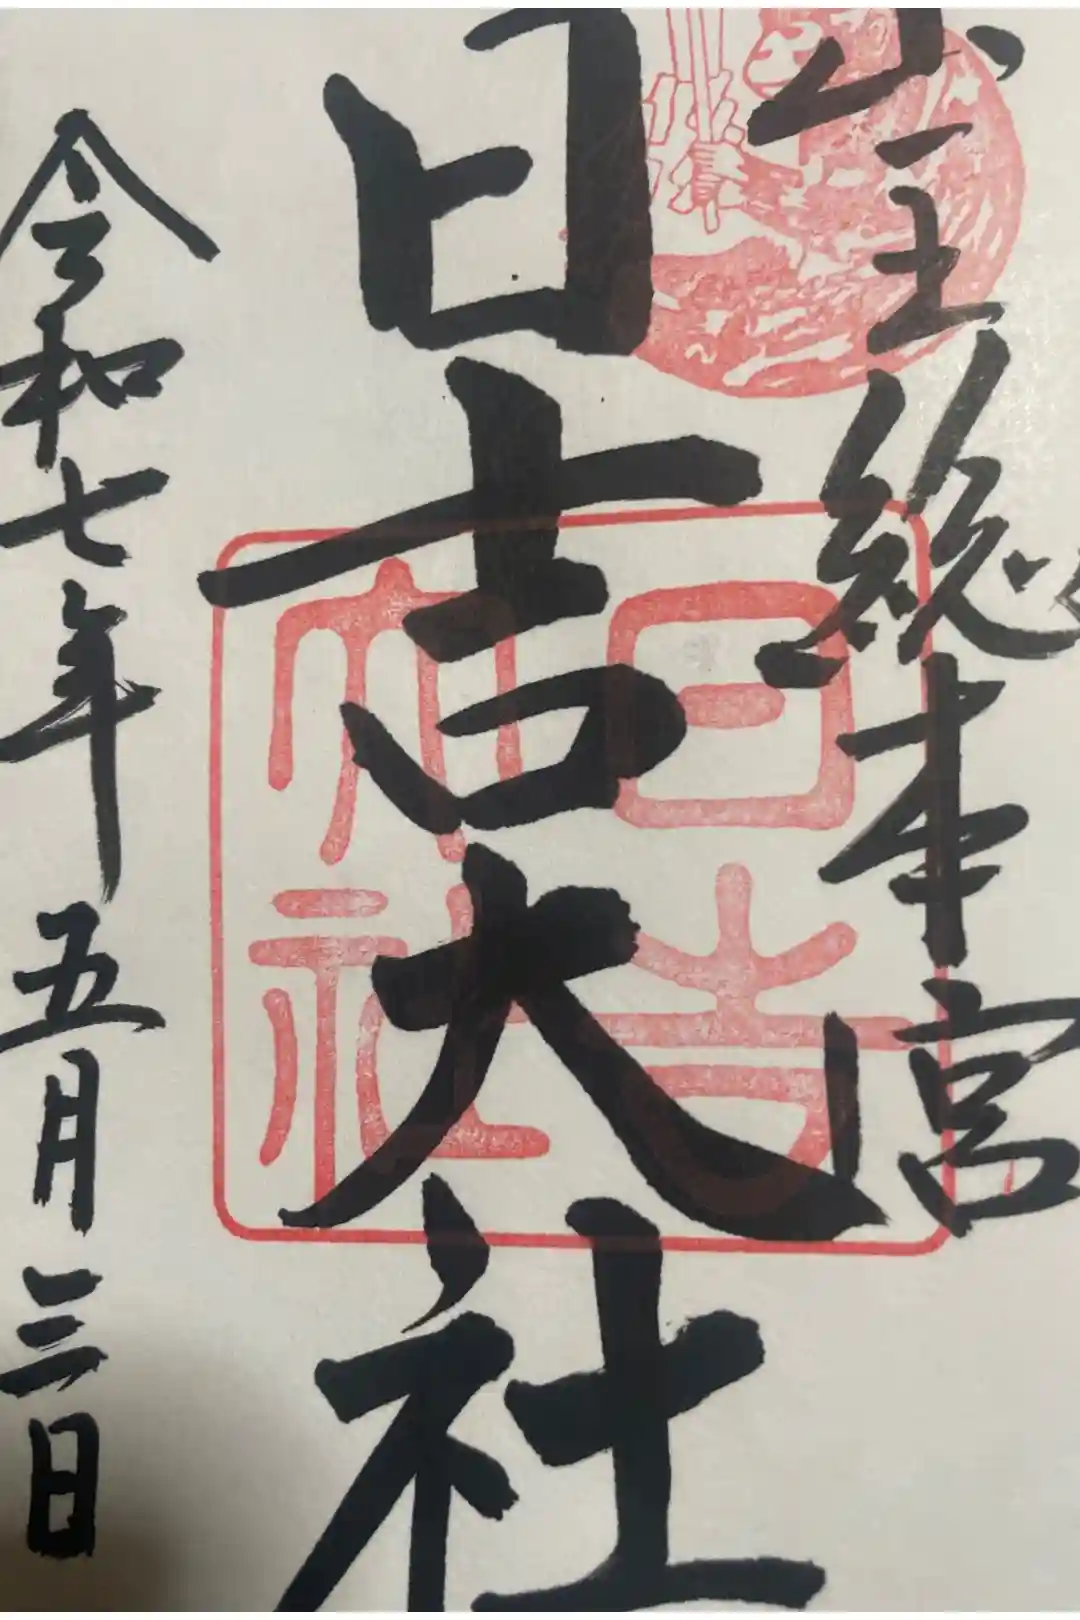 山王総本宮
日吉大社
日吉大社
令和七年五月三日